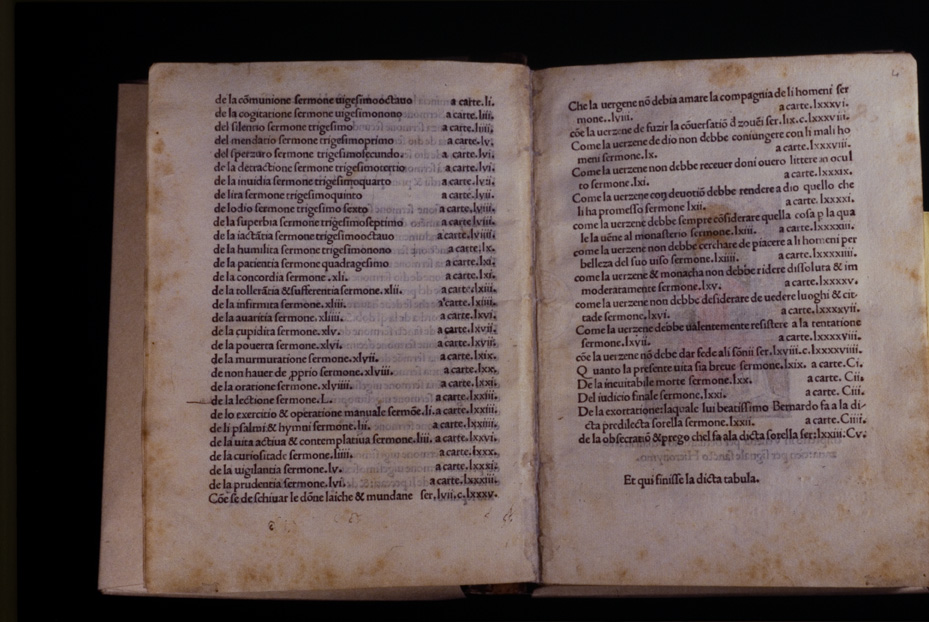 de la cõmunione sermone uigesimooctauo a carte.li.
de la cogitatione sermone uigesimonono a carte.liii.
del silentio sermone trigesimo a carte.liiii.
del mendatio sermone trigesimoprimo a carte.lv.
del sperzuro sermone trigesimosecundo. a carte.lvi.
de la detractione sermone trigesimotertio a carte.lvi.
de la inuidia sermone trigesimoquarto a carte.lvii.
de lira sermone trigesimoquinto a carte.lvii.
de lodio sermone trigesimo sexto a carte.lviii.
de la superbia sermone trigesimoseptimo a carte.lviii.
de la iactãtia sermone trigesimooctauo a carte.lviiii.
de la humilita sermone trigesimonono a carte.lx.
de la patientia sermone quadragesimo a carte.lxi.
de la concordia sermone .xli. a carte.lxi.
de la tollerãtia &sufferentia sermone.xlii. a carte.lxiii.
de la infirmita sermone.xliii. a carte.lxiiii.
de la auaritia sermone.xliiii. a carte.lxvi.
de la cupidita sermone.xlv. a carte.lxvii.
de la pouerta sermone.xlvi. a carte.lxviii.
de la murmuratione sermone.xlvii. a carte.lxix.
de non hauer de ꝓprio sermone.xlviii. a carte.lxx.
de la oratione sermone.xlviiii. a carte.lxxi.
de la lectione sermone.L. a carte.lxxiii.
de lo exercitio & operatione manuale sermõe.li. a carte.lxxiii.
de li psalmi & hymni sermone.lii. a carte.lxxiiii.
de la uita actiua & contemplatiua sermone.liii. a carte.lxxvi.
de la curiositade sermone.liiii. a carte.lxxx.
de la uigilantia sermone.lv. a carte.lxxxi.
de la prudentia sermone.lvi. a carte.lxxxiii.
Cõe se de schiuar le dõne laiche & mundane ser.lvii.c.lxxxv.
Che la uergene nõ debia amare la compagnia de li homeni ser
mone..lviii. a carte.lxxxvi.
cõe la uerzene de fuzir la cõuersatiõ d zouẽi ser.lix.c.lxxxviii.
Come la uerzene de dio non debbe coniungere con li mali ho
meni sermone.lx. a carte.lxxxviii.
Come la uerzene non debbe receuer doni ouero littere in ocul
to sermone.lxi. a carte.lxxxix.
Come la uerzene con deuotiõ debbe rendere a dio quello che
li ha promesso sermone lxii. a carte.lxxxxi.
come la uerzene debbe sempre cõsiderare quella cosa p la qua
le la uẽne al monasterio sermone.lxiii. a carte.lxxxxiii.
come la uerzene non debbe cerchare de piacere a li homeni per
bellezza del suo uiso sermone.lxiiii. a carte.lxxxxiiii.
come la uerzene & monacha non debbe ridere dissoluta & im
moderatamente sermone.lxv. a carte.lxxxxv.
come la uerzene non debbe desiderare de uedere luoghi & cit-
tade sermone.lxvi. a carte.lxxxxvii.
Come la uerzene debbe ualentemente resistere a la tentatione
sermone.lxvii. a carte.lxxxxviii.
cõe la uerzene nõ debe dar fede ali sõnii ser.lxviii.c.lxxxxviiii.
Q uanto la presente uita sia breue sermone.lxix. a carte.Ci.
De la ineuitabile morte sermone.lxx. a carte. Cii.
Del iudicio finale sermone.lxxi. a carte. Ciii.
De la exortatione:laquale lui beatissimo Bernardo fa a la di-
cta predilecta sorella sermone.lxxii. a carte.Ciiii.
de la obsecratiõ &prego chel fa ala dicta sorella ser:lxxiii.Cv.
Et qui finisse la dicta tabula.